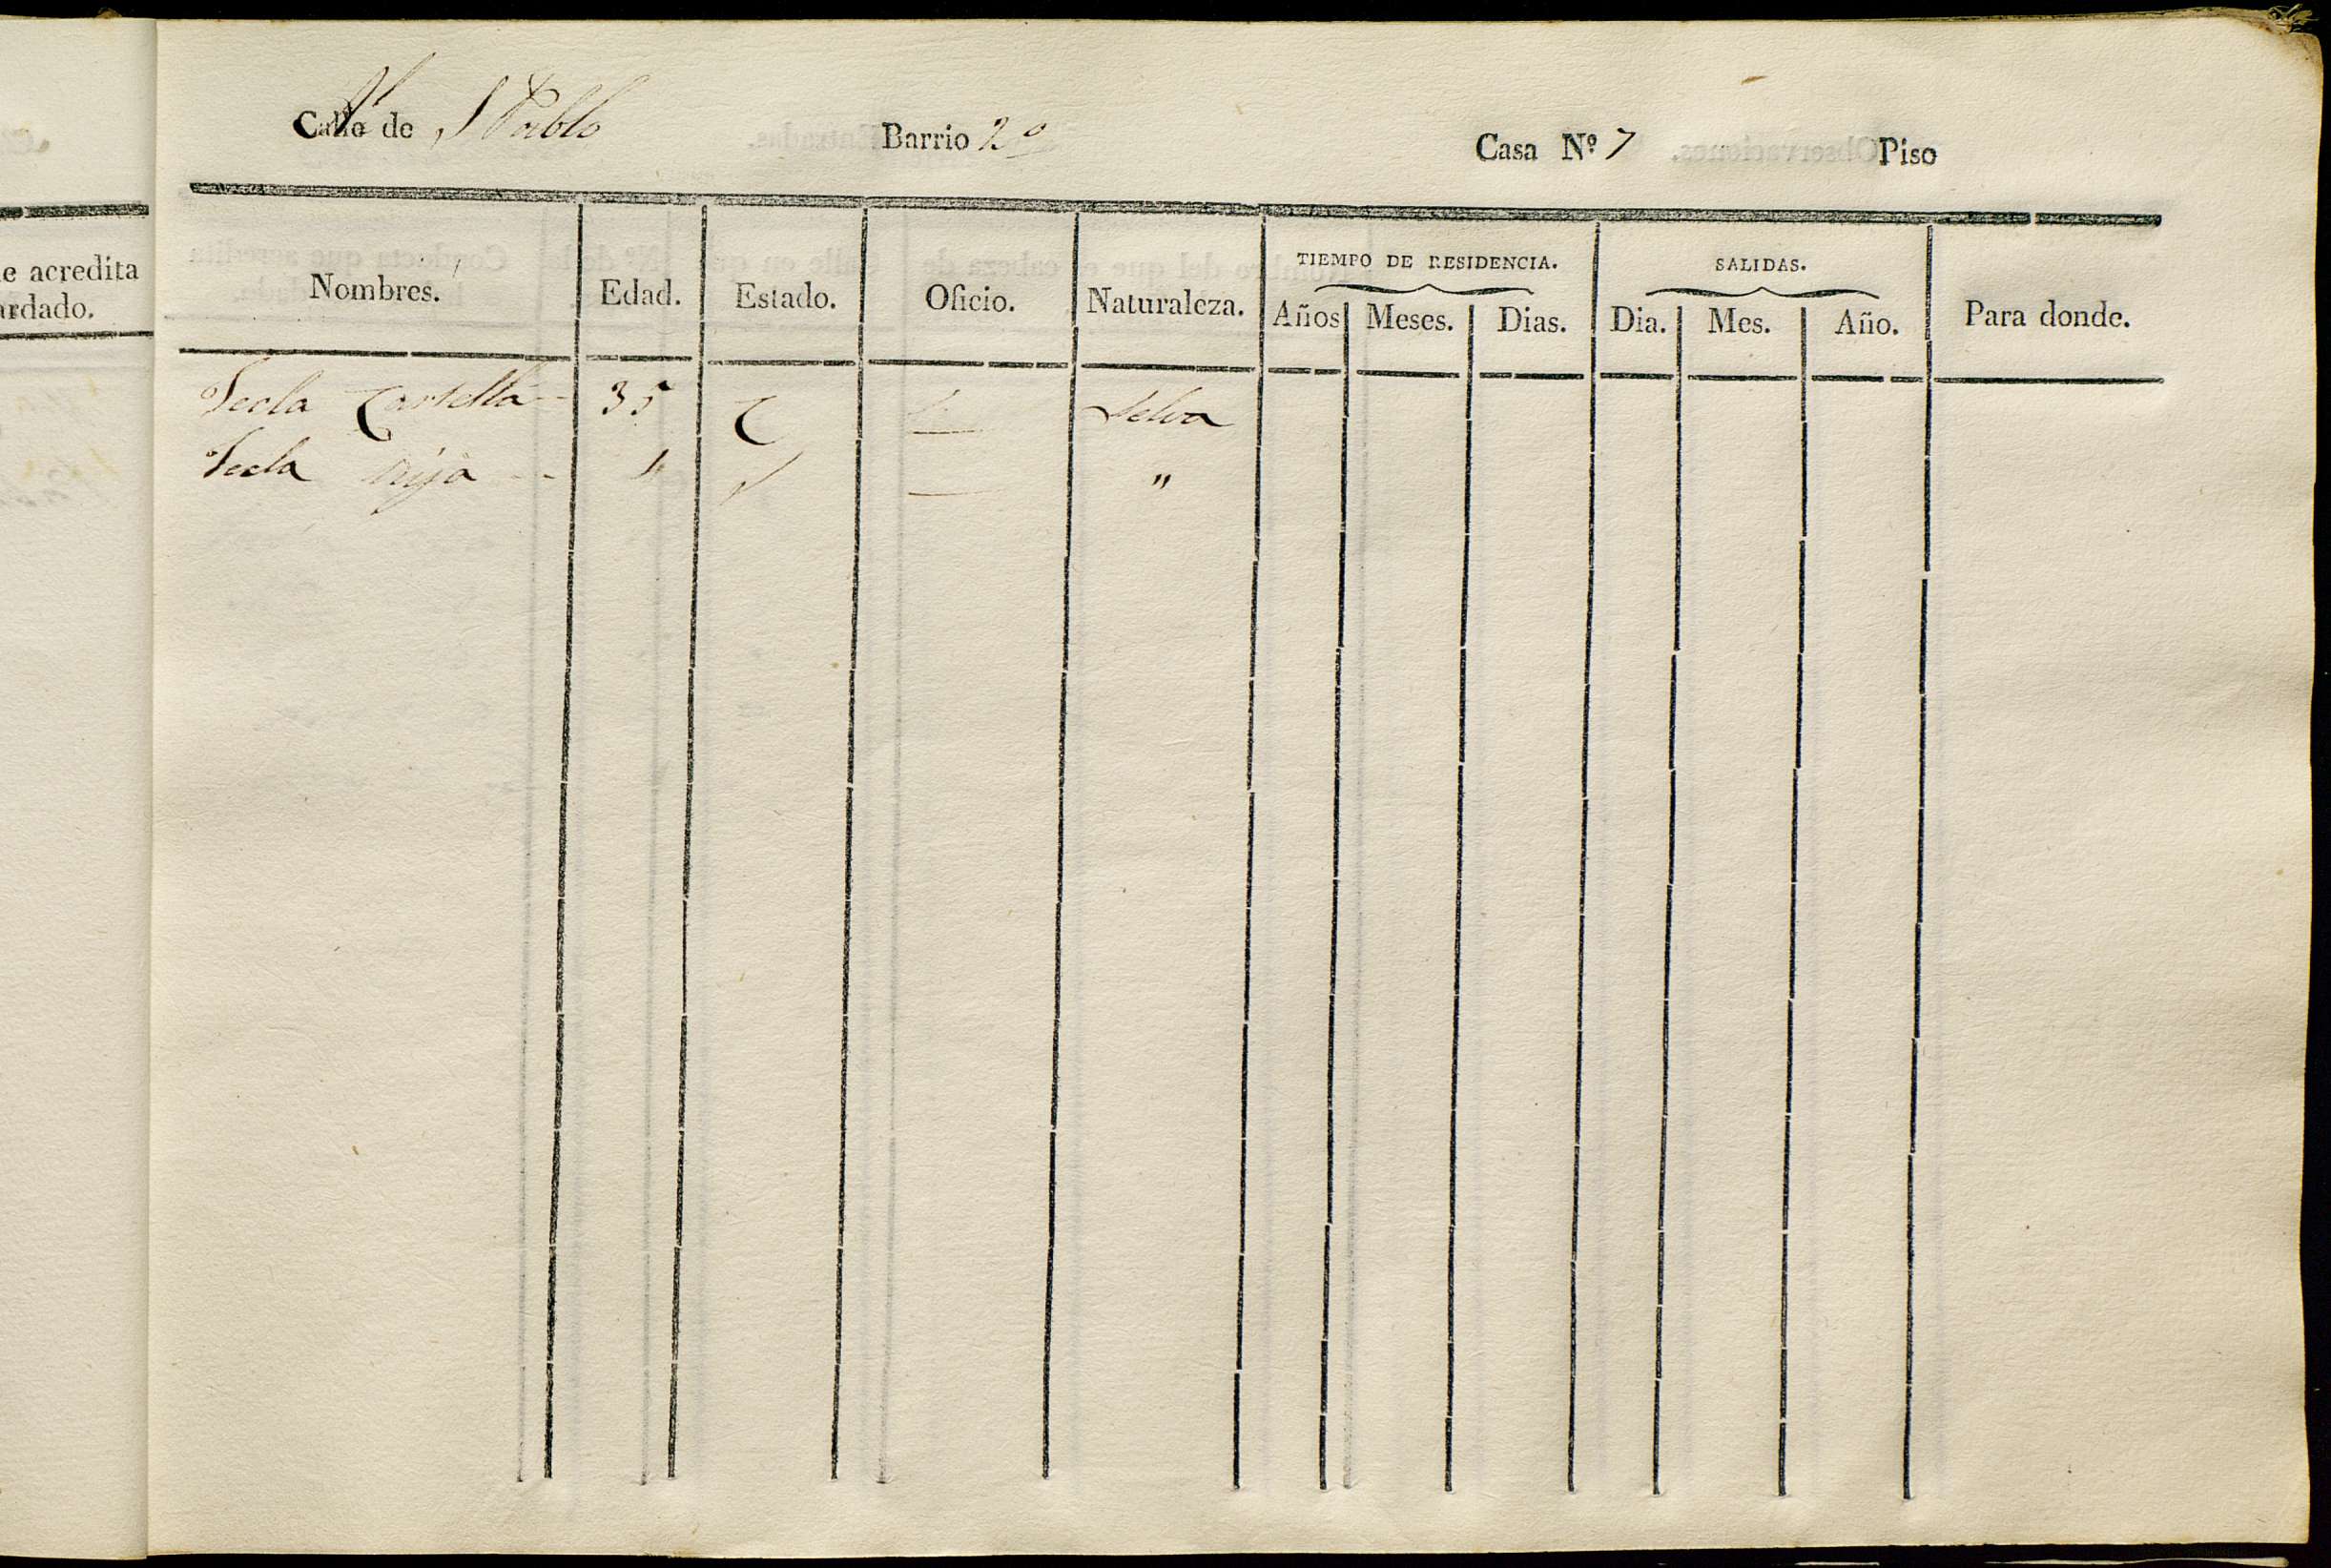 e acredita
ardado.
Calle de S Pablo Barrio 2º Casa Nº 7 Piso
Nombres. Edad. Estado. Oficio. Naturaleza. TIEMPO DE RESIDENCIA. SALIDAS. Para donde.
Años Meses. Dias. Dia. Mes. Año.
Tecla 35 C Selva
Tecla hija "